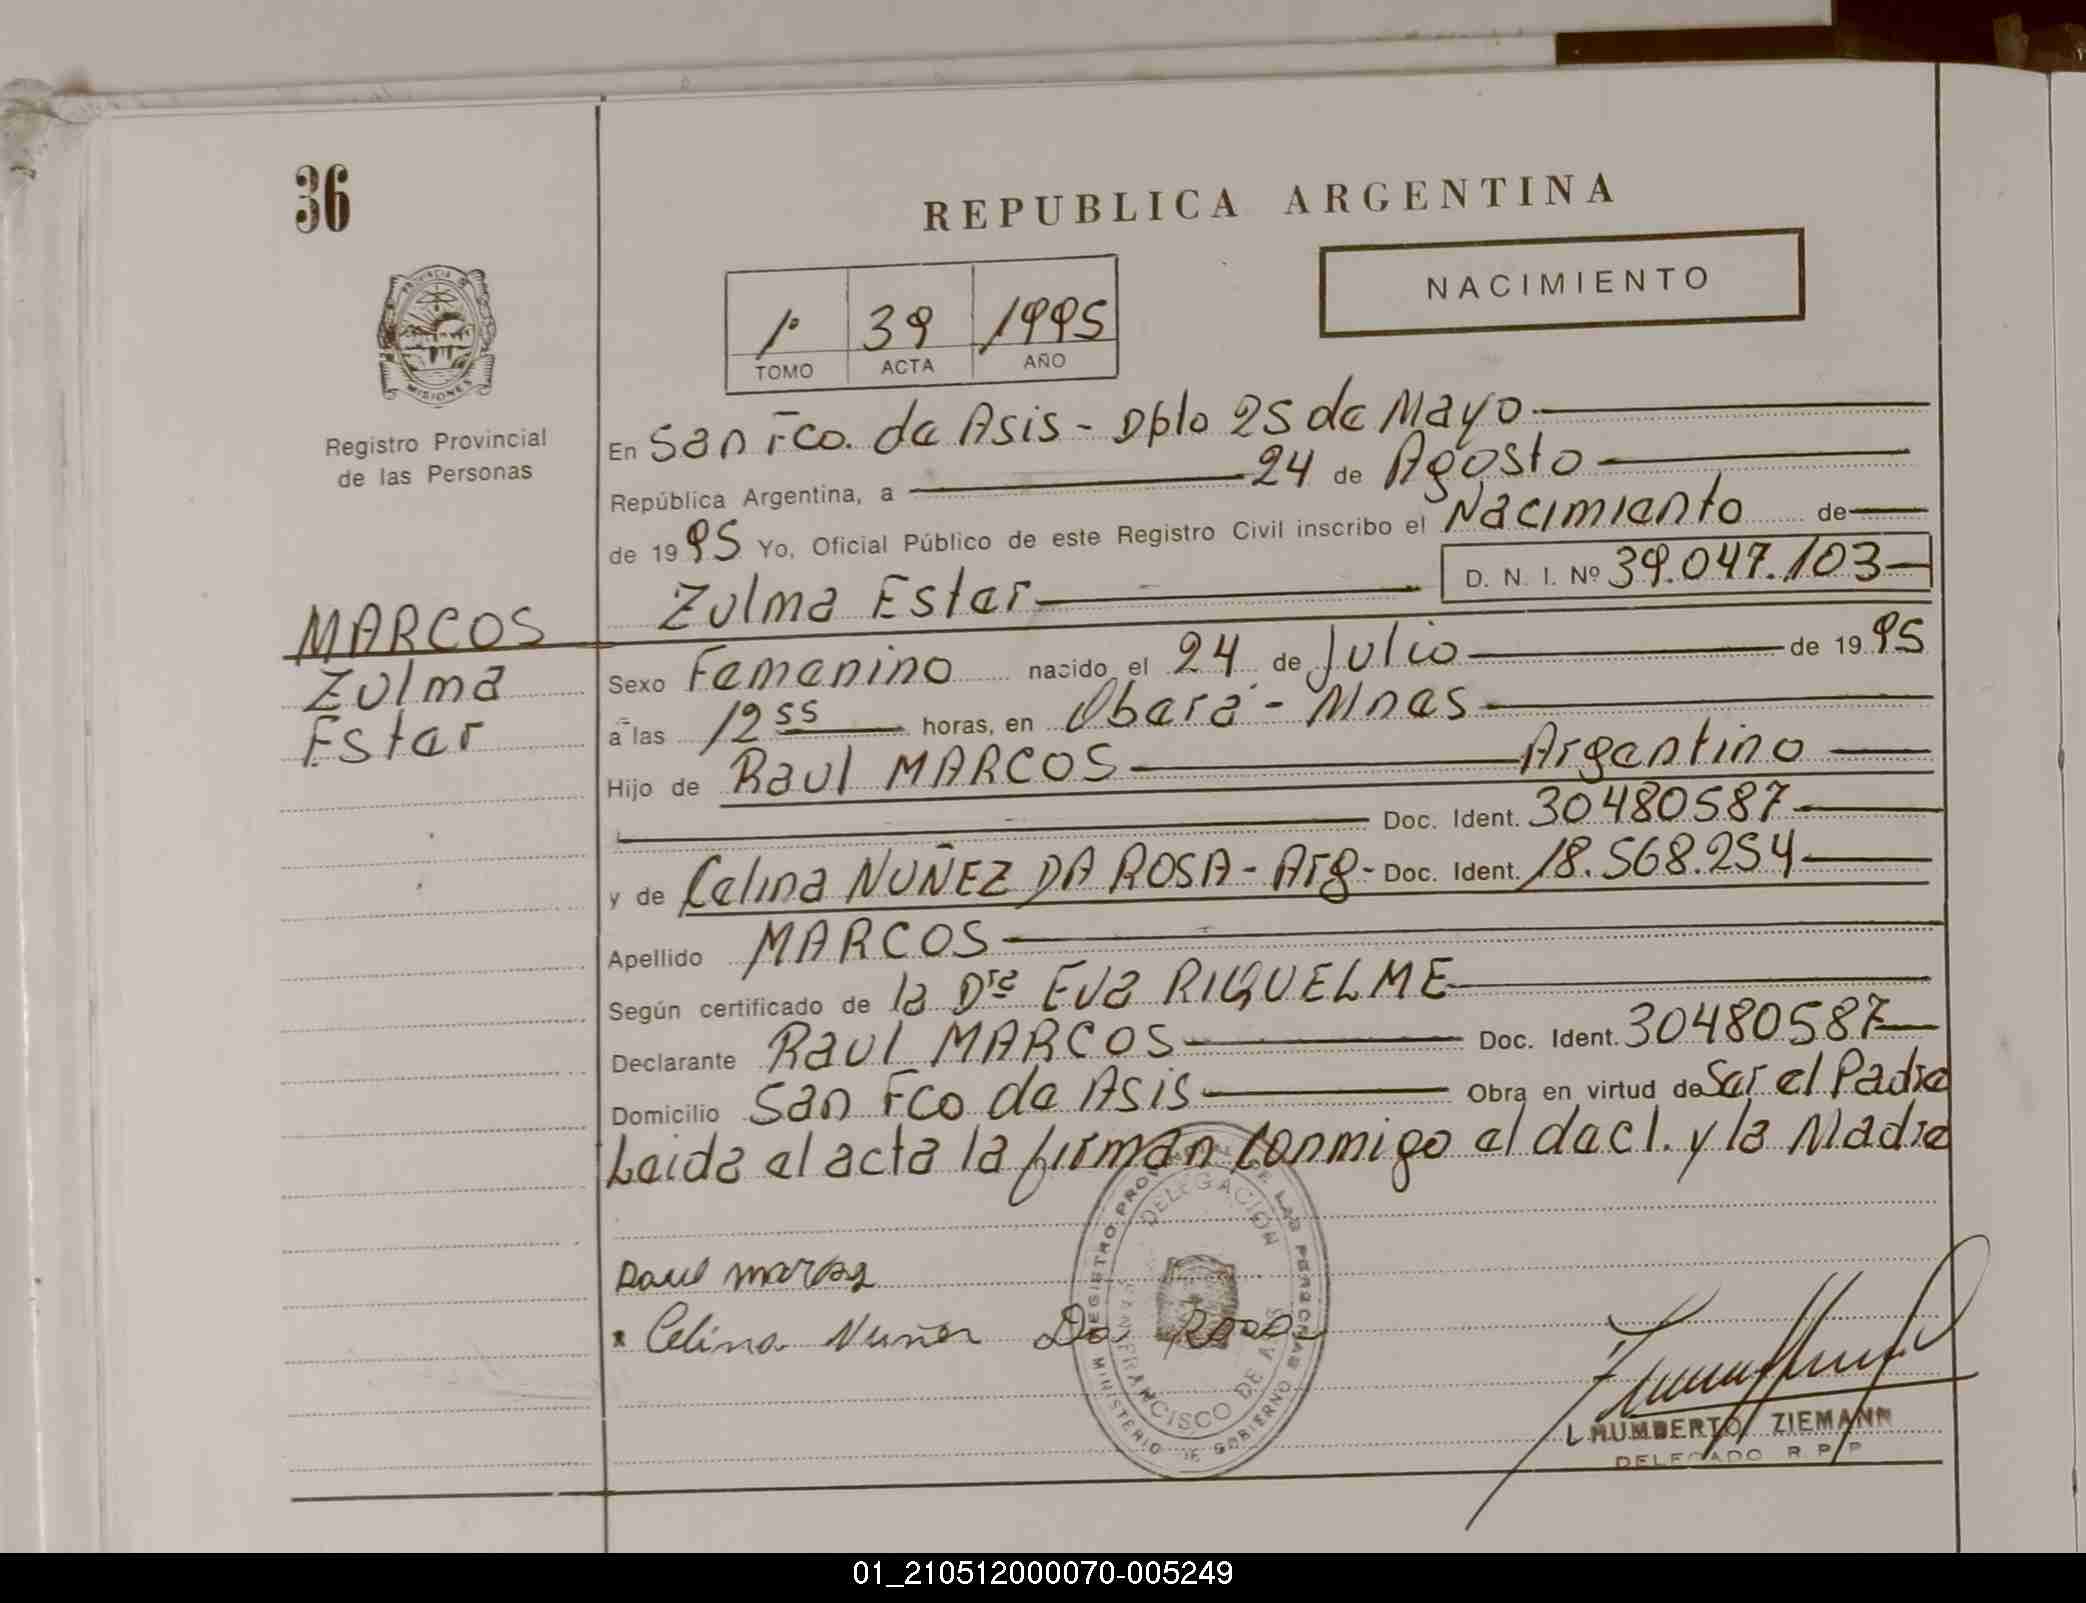 36
REPUBLICA ARGENTINA
NACIMIENTO
1º 39 1995
TOMO ACTA AÑO
PROVINCIA DE
MISIONES
Registro Provincial
de las Personas
En San Fco. de Asis - Dpto 25 de Mayo
República Argentina, a 24 de Agosto
de 1995 Yo, Oficial Público de este Registro Civil inscribo el Nacimiento de
Zulma Ester D. N. I. Nº 39.047.103
MARCOS
Zulma
Ester
Sexo Femenino nacido el 24 de Julio de 1995
a las 12 55 horas, en Oberá - Mnes
Hijo de Raul MARCOS Argentino
Doc. Ident. 30480587
y de Celina NUÑEZ DA ROSA - Arg - Doc. Ident. 18.568.254
Apellido MARCOS
Según certificado de la Dra Eva RIQUELME
Declarante Raul MARCOS Doc. Ident. 30480587
Domicilio San Fco de Asis Obra en virtud de Ser el Padre
Leida el acta la firman conmigo el decl. y la Madre
Raul marcos
Celina Nuñez Da Rosa
REGISTRO PROVINCIAL DE LAS PERSONAS
MINISTERIO DE GOBIERNO
DELEGACION
SAN FRANCISCO DE ASIS
L. HUMBERTO ZIEMANN
DELEGADO R. P. P.
01_210512000070-005249